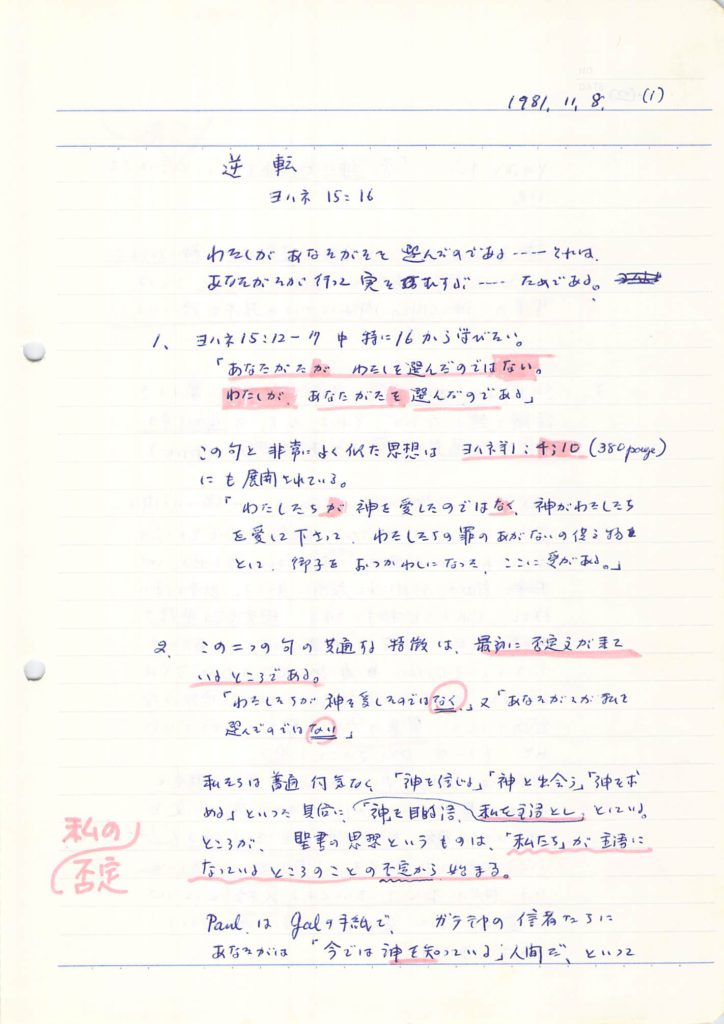 1981. 11. 8. (1)
逆 転
ヨハネ 15:16
わたしが あなたがたを 選んだのである……それは、
あなたがたが行って 実をむすび…… ためである。
1、 ヨハネ15:12-17 中 特に16から学びたい。
「あなたがたが わたしを選んだのではない。
わたしが、あなたがたを選んだのである」
この句と 非常によく似た思想は ヨハネ第1:4;10 (380page)
にも展開されている。
「わたしたちが 神を愛したのではなく、神がわたしたち
を愛して下さって、わたしたちの罪のあがないの供え物を
として、御子をおつかわしになった、ここに愛がある。」
2、 この二つの句の共通な特徴は、最初に否定文が来て
いるところである。
「わたしたちが 神を愛したのではなく、」又「あなたがたが私を
選んだのではない」
私たちは普通 何気なく、「神を信じる」「神と出会う」「神を求
める」といった具合に、「神を目的語、私を主語とし」としている。
ところが、聖書の思想というものは、「私たち」が主語に
なっているところのことの否定から始まる。
私の
否定
Paul は Galの手紙で、 ガラテヤの信者たちに
あなたがたは 「今では神を知っている」人間だ、といって